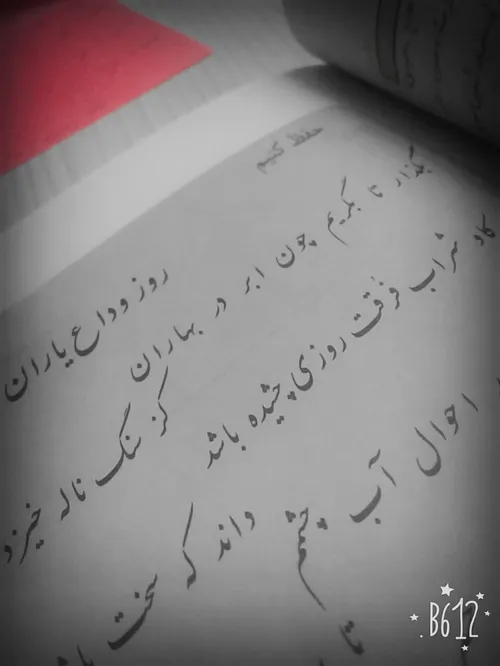 حفظ کنیم
بگذار تا بگریم چون ابر در بهاران
کز سنگ ناله خیزد روز وداع یاران
کاو شراب فرقت روزی چشیده باشد
داند که سخت
احوال آب چشمم
B612